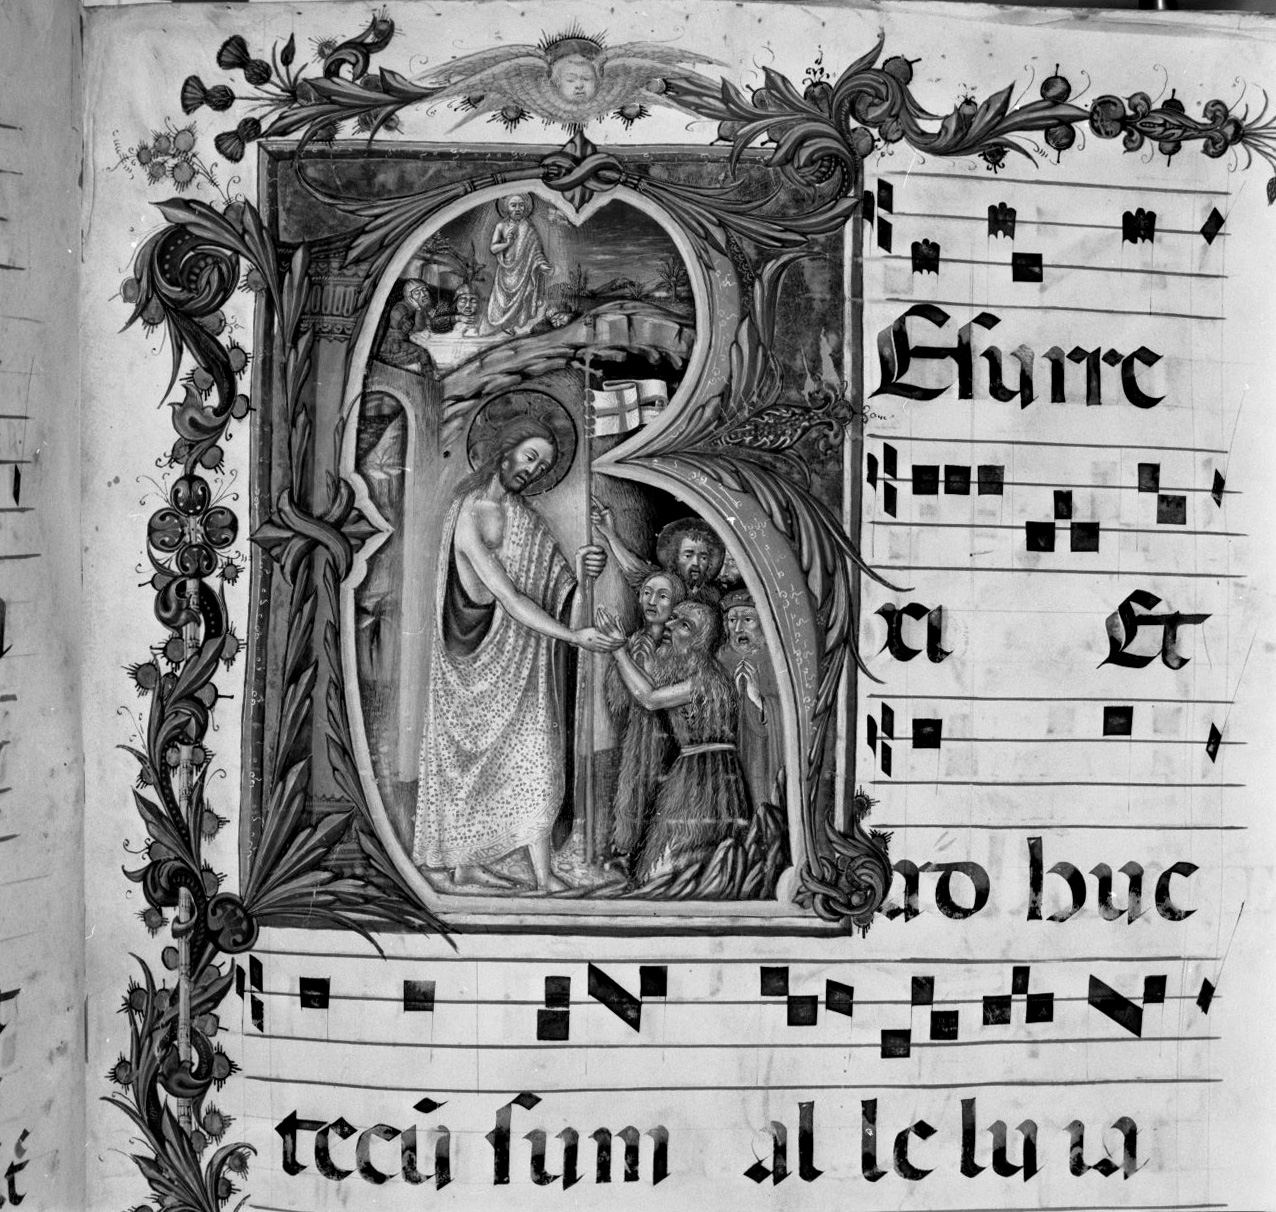 R
Eſurre
xi Et
ad huc
tecū ſum al le lu ia